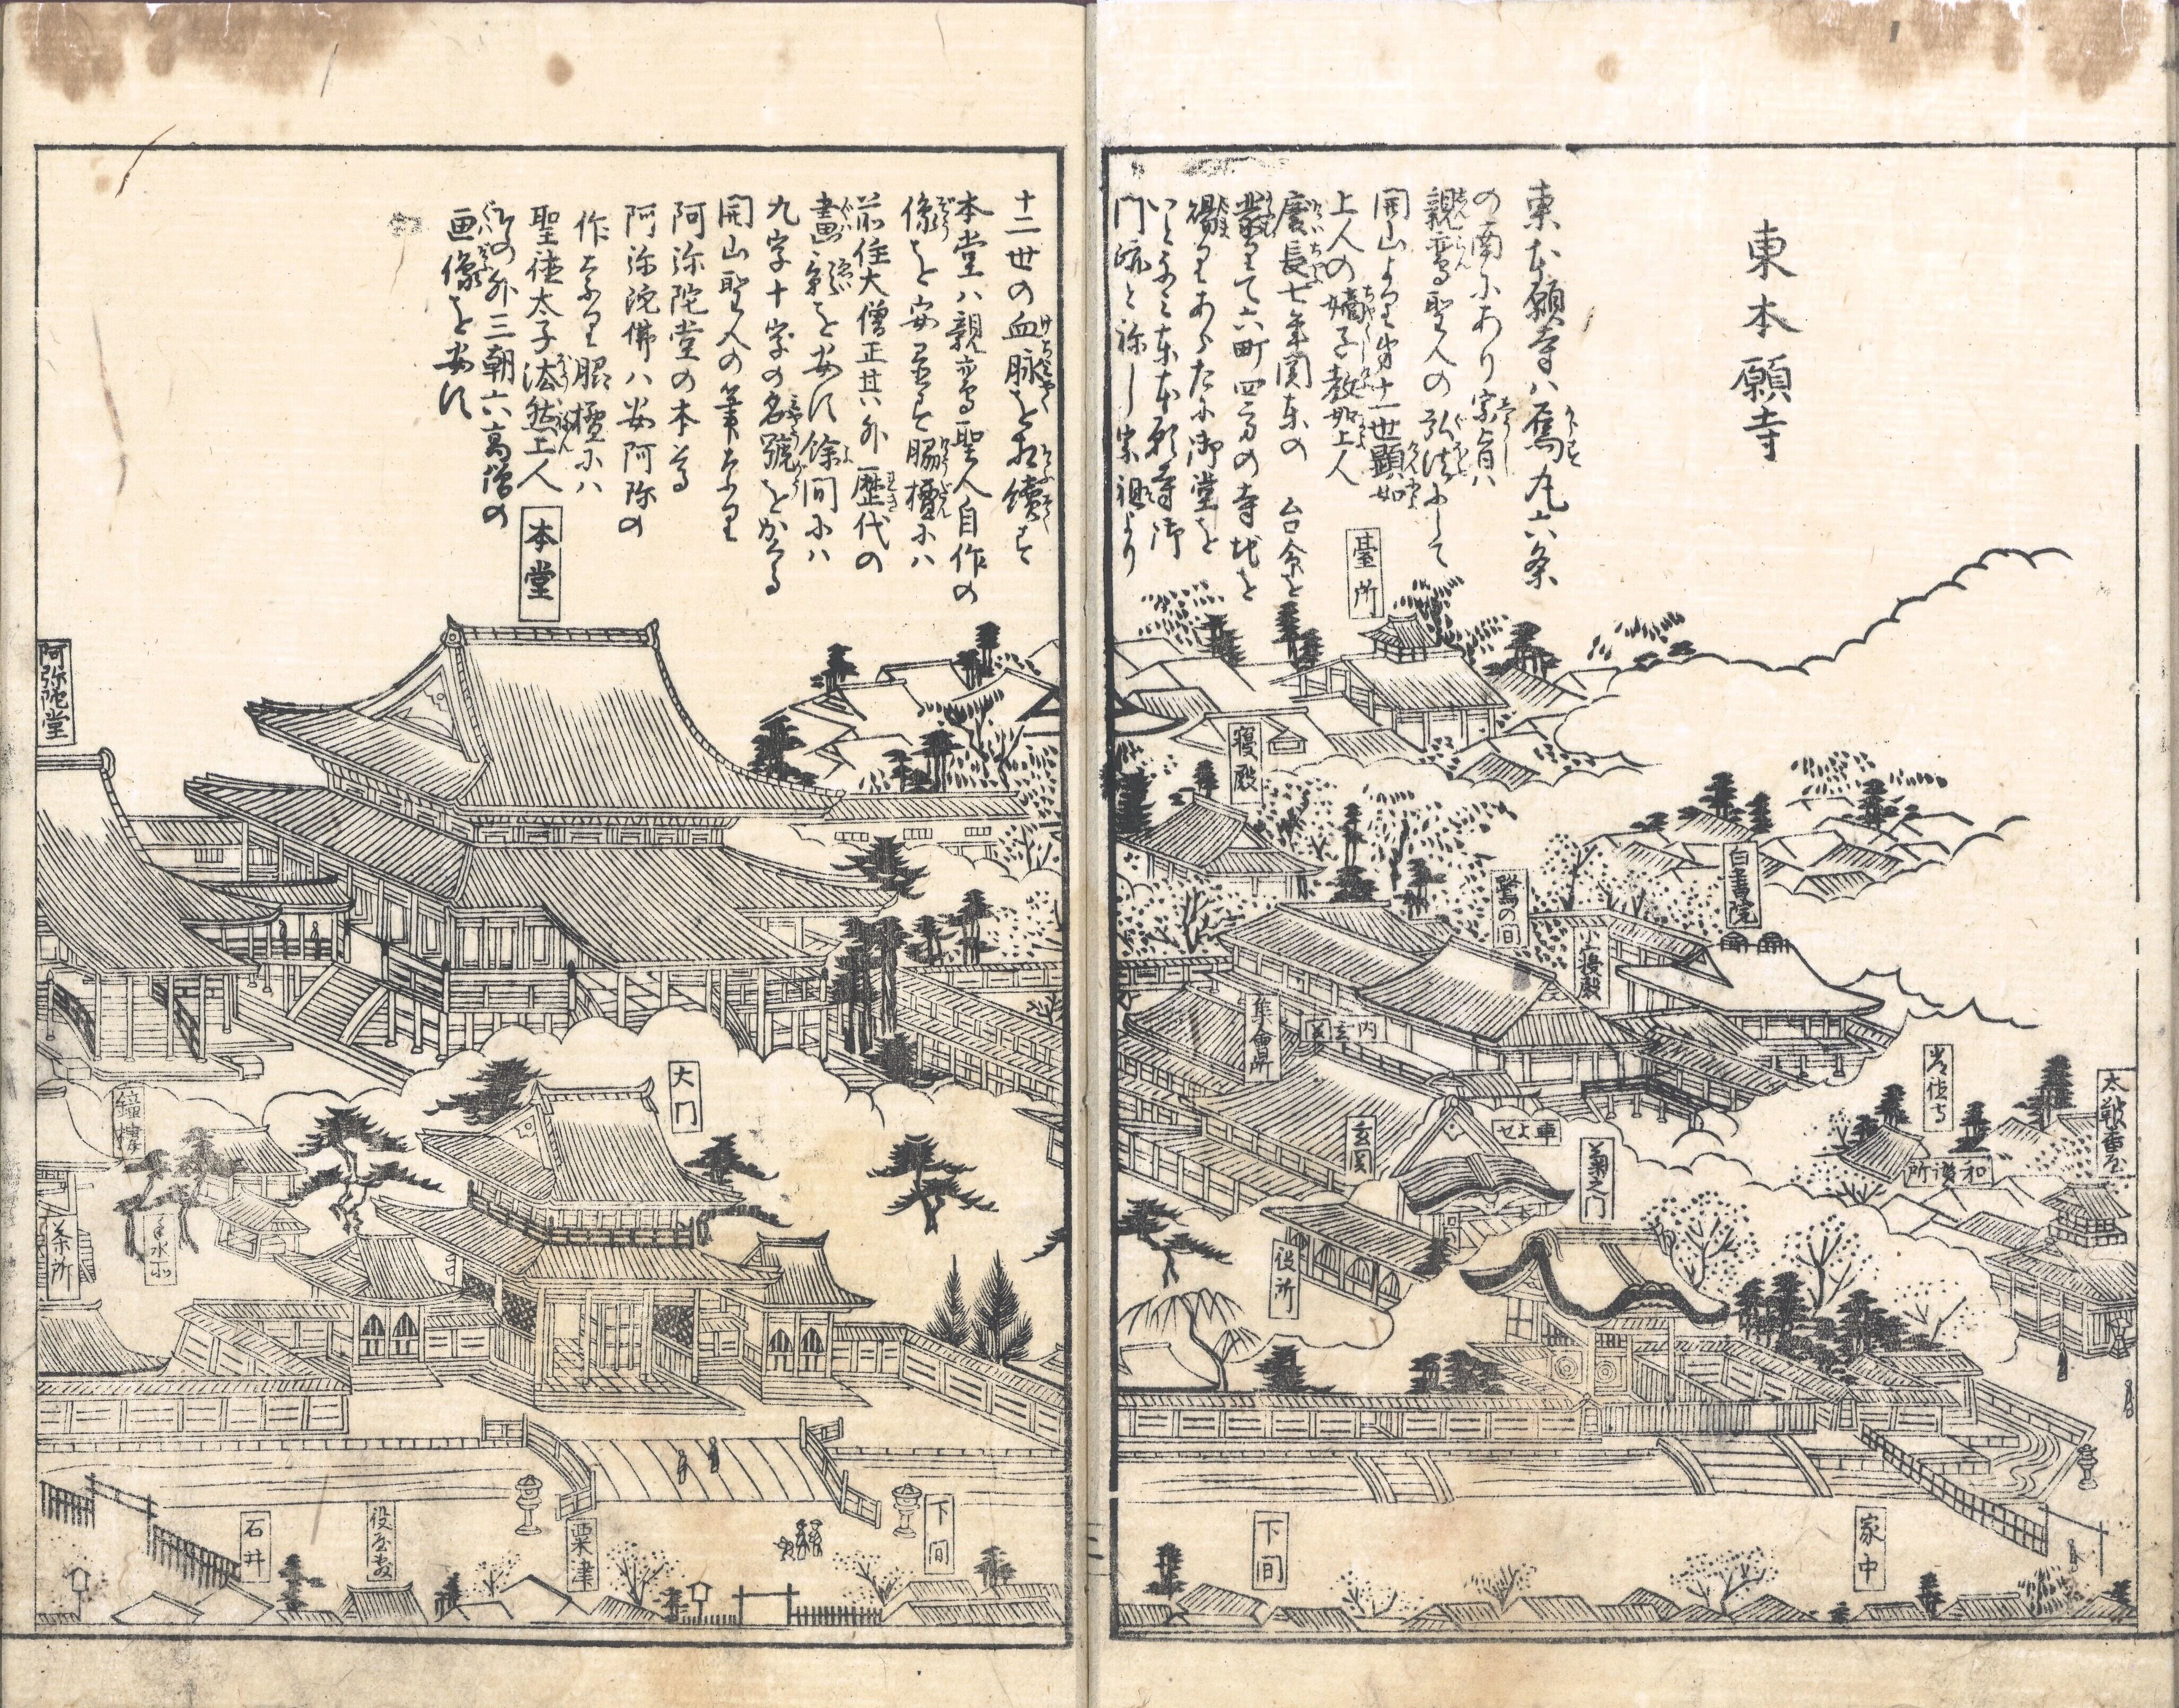 東本願寺
東本願寺ハ烏丸六条
の南にあり宗旨ハ
親鸞聖人の弘法にして
開山より第十一世顕如
上人の嫡子教如上人
慶長七年関東の 台命を
蒙りて六町四方の寺地を
賜りあらたに御堂を
いとなミ東本願寺御
門跡と称し宗祖より
十二世の血脉を相續す
本堂ハ親鸞聖人自作の
像を安置す脇檀にハ
前住大僧正其外歴代の
畫像を安す餘間にハ
九字十字の名號をかくる
開山聖人の筆なり
阿弥陀堂の本尊
阿弥陀佛ハ安阿弥の
作なり脇檀にハ
聖徳太子法然上人
其の外三朝六高僧の
画像を安す
臺所
寝殿
白書院
鷺の間
小寝殿
集會所
内玄関
太鼓番屋
和讃所
車よせ
玄関
菊之門
役所
家中
下間
本堂
阿弥陀堂
大門
鐘楼
手水所
茶所
下間
粟津
石井